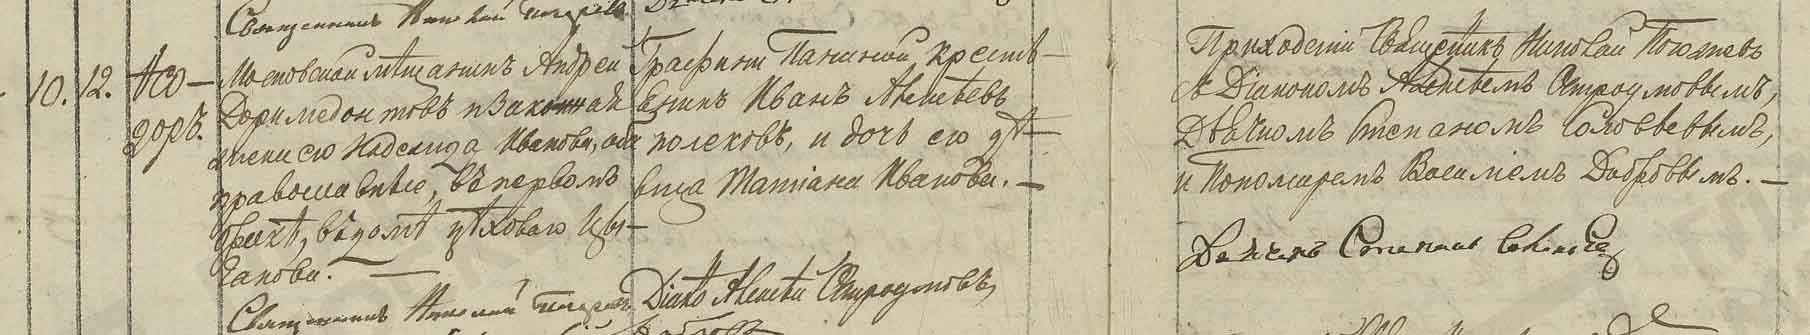 Священникъ Николай
10. 12. Ѳео-
доръ.
Московскій мѣщанинъ Андрей
Доримедонтовъ и законная
жена его Надежда Иванова, оба
православные, въ первомъ
бракѣ, въ домѣ цѣховаго Цы-
ганова. —
Священникъ Николай
Графини Паниной крестья-
нинъ Иванъ Алексѣевъ
Полеховъ, и дочь его дѣ-
вица Татіана Иванова. —
Діаконъ Алексѣй Остроумовъ,
Приходскій Священникъ Николай
съ Діакономъ Алексѣемъ Остроумовымъ,
Дьячкомъ Стефаномъ Соловьевымъ,
и Пономаремъ Василіемъ Добровымъ. —
Дьячекъ Стефанъ Соловьевъ